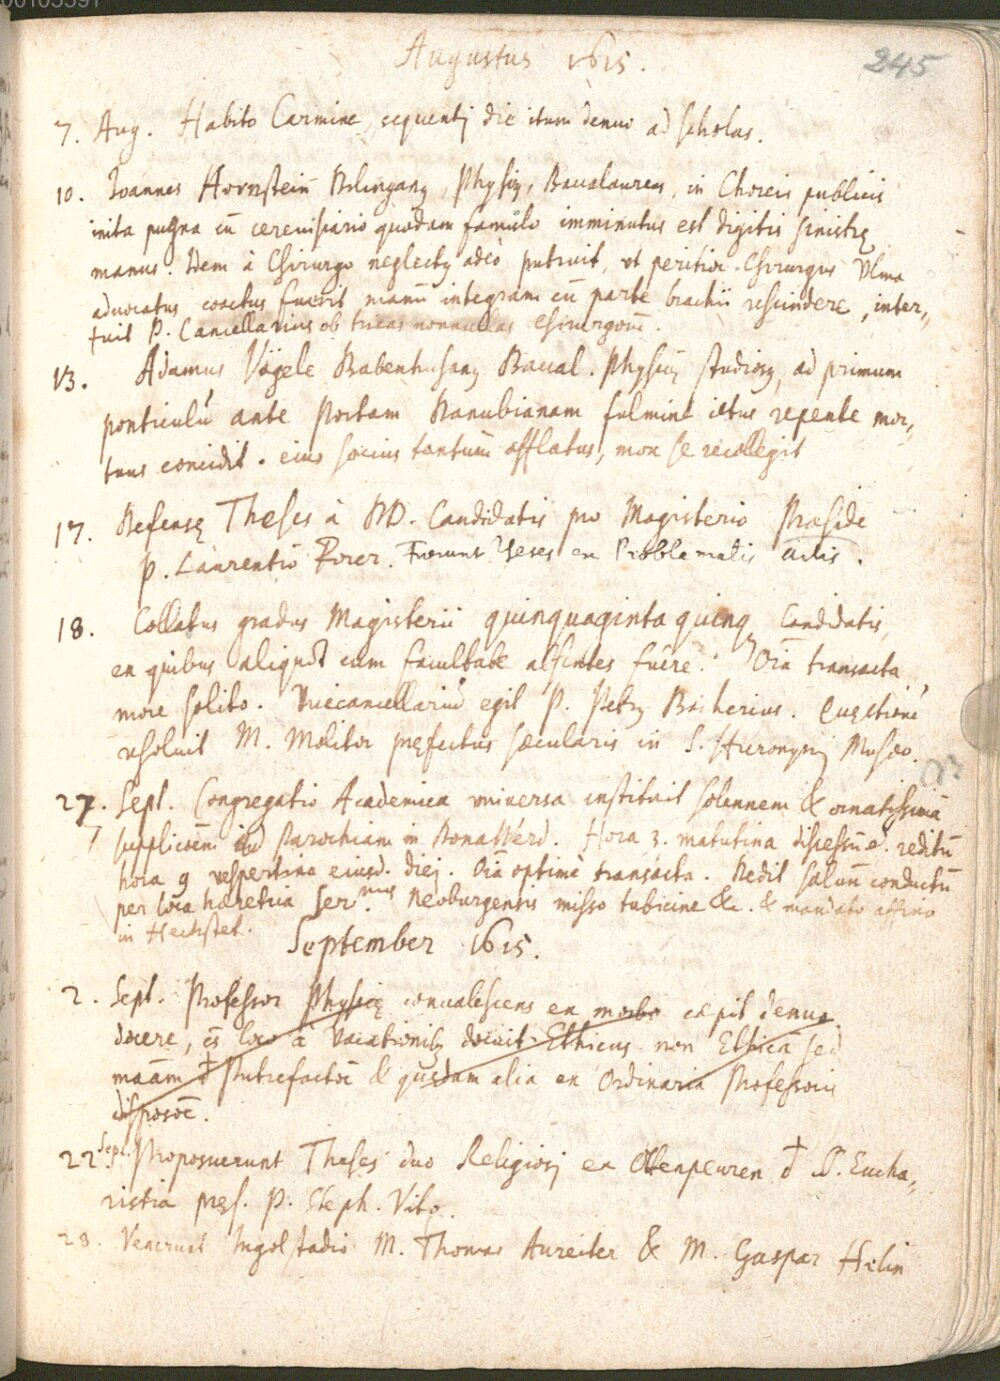 00103391
Augustus 1615.
245
7. Aug. Habito Carmine, sequentj die itum denuo ad scholas.
10. Joannes Hornstein Dilinganꝰ, Physicꝰ, Baccalaureus, in Choreis publicis
inita pugna cū cerevisiario quodam famulo imminutus est digitis sinistrę
manus. Idem à Chirurgo neglectꝰ adeò putruit, ut peritior Chirurgus Ulma
advocatus coactus fuerit manū integram cū parte brachii rescindere, inter,,
fuit P. Cancellarius ob tricas nonnullas Chirurgorū.
13. Adamus Vögele Babenhusanꝰ Baccal. Physicę studiosꝰ, ad primum
ponticulū ante Portam Danubianam fulminis ictus repente mor,,
tuus concidit. eius socius tantum afflatus, mox se recollegit
17. Defensę Theses à DD. Candidatis pro Magisterio Præside
P. Laurentio Forer. Fuerunt Theses ex Problematis
18. Collatus gradus Magisterii quinquaginta quinqꝫ Candidatis,
ex quibus aliquot cum facultate absentes fuêre. Oīa transacta
more solito. Vicecancellariū egit P. Petrꝰ Bacherius. Quęstionē
resolvit M. Molitor pręfectus sæcularis in S. Hieronymj Musæo.
27. Sept. Congregatio Academica universa instituit solennem & ornatissimā
supplicōem ad Parochiam in Donawerd. Hora 3. matutina discessū ē. reditū
hora 9 vespertina eiusd. diej. Oīa optimè transacta. Dedit salvū conductū
per loca hæretica Ser.mus Neoburgensis misso tubicine &c. & mandato affixo
in Hechstet.
September 1615.
2. Sept. Professor Physicę convalescens ex morbo cæpit denuo
docere, eiꝰ loco à Vacationibꝫ docuit Ethicus non Ethica sed
māam Putrefactōe & quędam alia ex Ordinaria Professoris
disposōe.
22 Sept. Proposuerunt Theses duo Religiosj ex Ottenpeuren D. Eucha,,
ristia pręs. P. Steph.
28. Venerunt Ingolstadio M. Thomas Aureiter & M. Gaspar Helin